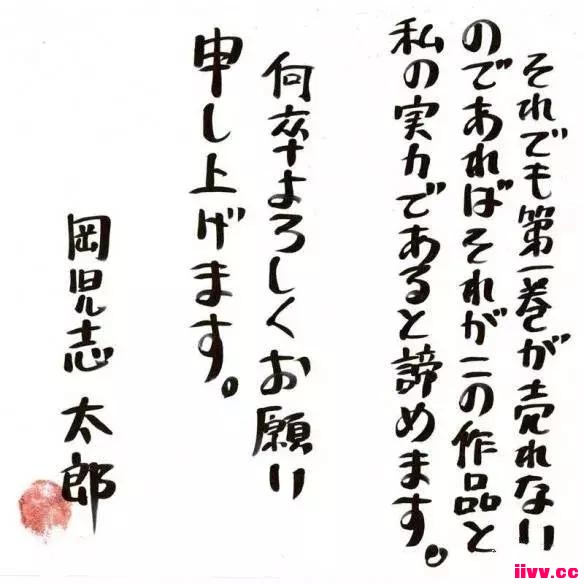 それでも第一巻が売れない
のであればそれがこの作品と
私の実力であると諦めます。
何卒よろしくお願い
申し上げます。
岡児志太郎
iivv.cc